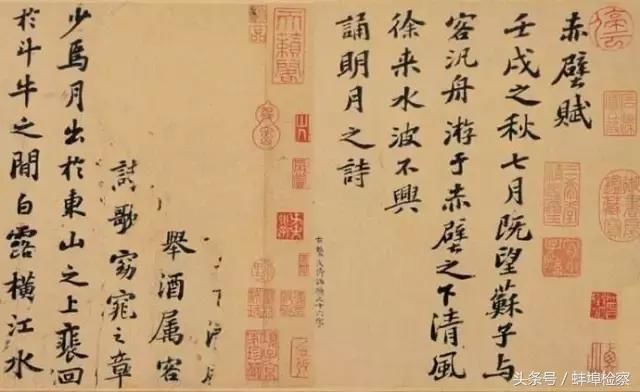 赤壁賦
壬戌之秋七月既望蘇子與
客汎舟游于赤壁之下清風
徐来水波不興
誦明月之詩
天籟閣
舉酒属客
歌窈窕之章
少焉月出於東山之上裵回
於斗牛之間白露橫江水
头条号 / 蚌埠检察